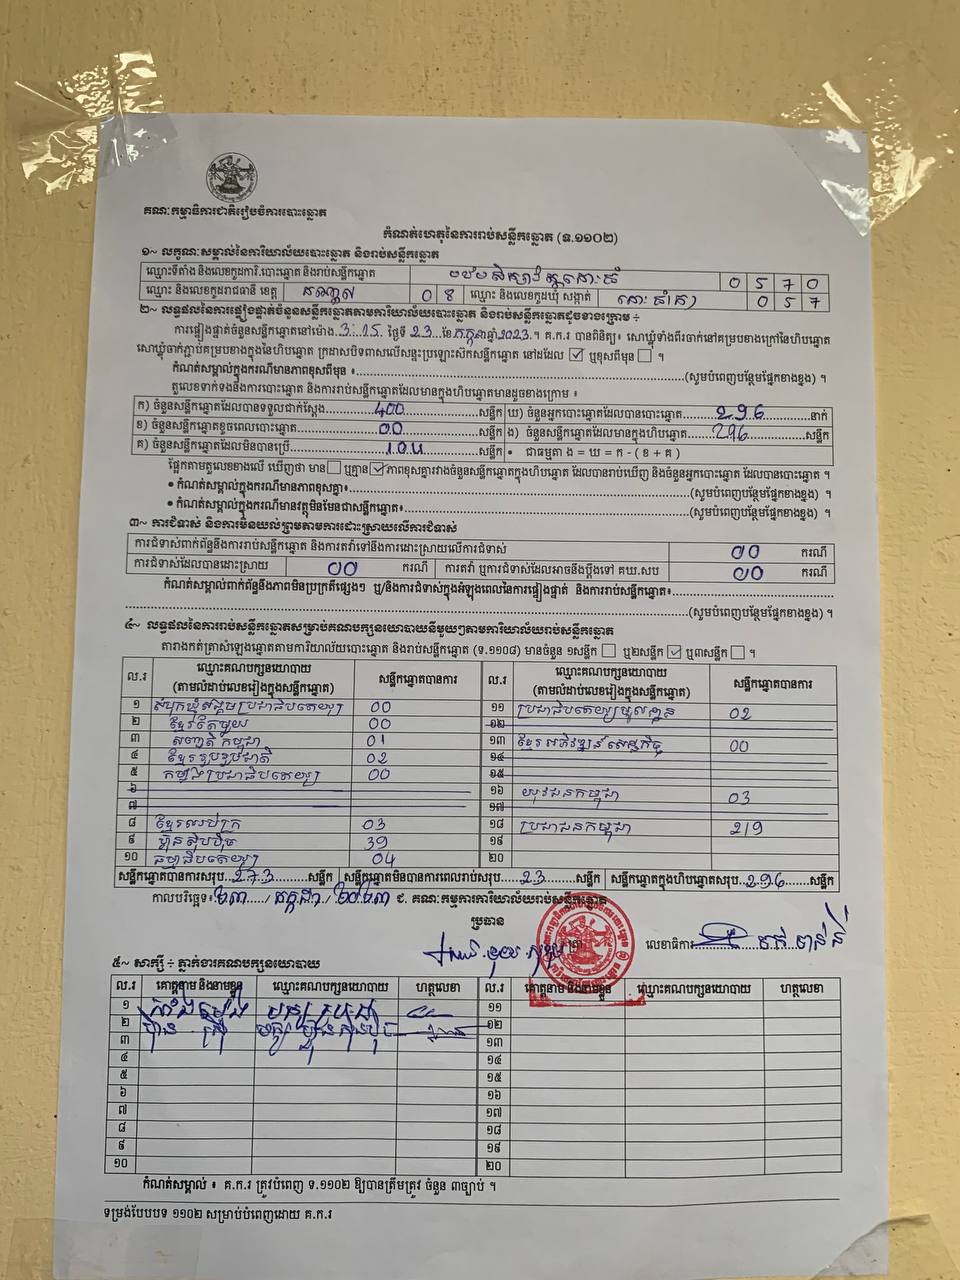 គណៈកម្មាធិការជាតិរៀបចំការបោះឆ្នោត
កំណត់ហេតុនៃការរាប់សន្លឹកឆ្នោត (ទ.១១០២)
១~ លក្ខណៈសម្គាល់នៃការិយាល័យបោះឆ្នោត និងរាប់សន្លឹកឆ្នោត
ឈ្មោះទីតាំង និងលេខកូដការិ.បោះឆ្នោត និងរាប់សន្លឹកឆ្នោត 0 5 7 0
ឈ្មោះ និងលេខកូដរាជធានី ខេត្ត កណ្តាល 0 8 ឈ្មោះ និងលេខកូដឃុំ សង្កាត់ 0 5 7
២~ លទ្ធផលនៃការផ្ទៀងផ្ទាត់ចំនួនសន្លឹកឆ្នោតតាមការិយាល័យបោះឆ្នោត និងរាប់សន្លឹកឆ្នោតដូចខាងក្រោម ÷
ការផ្ទៀងផ្ទាត់ចំនួនសន្លឹកឆ្នោតនៅម៉ោង 3:15 ថ្ងៃទី 23 ខែ កក្កដា ឆ្នាំ 2023 ។ គ.ក.រ បានពិនិត្យ៖ សោឃ្លុំទាំងពីរចាក់នៅគម្របខាងក្រៅនៃហិបឆ្នោត
សោឃ្លុំចាក់ភ្ជាប់គម្របខាងក្នុងនៃហិបឆ្នោត ក្រដាសបិទពាសលើសន្ទះប្រឡោះស៊កសន្លឹកឆ្នោត នៅដដែល ☑ ឬខុសពីមុន ☐ ។
កំណត់សម្គាល់ក្នុងករណីមានភាពខុសពីមុន ៖ (សូមបំពេញបន្ថែមផ្នែកខាងខ្នង) ។
តួលេខទាក់ទងនឹងការបោះឆ្នោត និងការរាប់សន្លឹកឆ្នោតដែលមានក្នុងហិបឆ្នោតមានដូចខាងក្រោម ៖
ក) ចំនួនសន្លឹកឆ្នោតដែលបានទទួលជាក់ស្តែង 400 សន្លឹក ឃ) ចំនួនអ្នកបោះឆ្នោតដែលបានបោះឆ្នោត 296 នាក់
ខ) ចំនួនសន្លឹកឆ្នោតខូចពេលបោះឆ្នោត 00 សន្លឹក ង) ចំនួនសន្លឹកឆ្នោតដែលមានក្នុងហិបឆ្នោត 296 សន្លឹក
គ) ចំនួនសន្លឹកឆ្នោតដែលមិនបានប្រើ 104 សន្លឹក • ជាធម្មតា ង = ឃ = ក - ( ខ + គ )
ផ្អែកតាមតួលេខខាងលើ ឃើញថា មាន ☐ ឬគ្មាន ☑ ភាពខុសគ្នារវាងចំនួនសន្លឹកឆ្នោតក្នុងហិបឆ្នោត ដែលបានរាប់ឃើញ និងចំនួនអ្នកបោះឆ្នោត ដែលបានបោះឆ្នោត ។
• កំណត់សម្គាល់ក្នុងករណីមានភាពខុសគ្នា៖ (សូមបំពេញបន្ថែមផ្នែកខាងខ្នង) ។
• កំណត់សម្គាល់ក្នុងករណីមានវត្ថុមិនមែនជាសន្លឹកឆ្នោត៖ (សូមបំពេញបន្ថែមផ្នែកខាងខ្នង) ។
៣~ ការជំទាស់ និងការមិនយល់ព្រមតាមការដោះស្រាយលើការជំទាស់
ការជំទាស់ពាក់ព័ន្ធនឹងការរាប់សន្លឹកឆ្នោត និងការតវ៉ាទៅនឹងការដោះស្រាយលើការជំទាស់ 00 ករណី
ការជំទាស់ដែលបានដោះស្រាយ 00 ករណី ការតវ៉ា ឬការជំទាស់ដែលអាចនឹងប្តឹងទៅ គឃ.សប 00 ករណី
កំណត់សម្គាល់ពាក់ព័ន្ធនឹងភាពមិនប្រក្រតីផ្សេងៗ ឬ/និងការជំទាស់ក្នុងអំឡុងពេលនៃការផ្ទៀងផ្ទាត់ និងការរាប់សន្លឹកឆ្នោត៖
(សូមបំពេញបន្ថែមផ្នែកខាងខ្នង) ។
៤~ លទ្ធផលនៃការរាប់សន្លឹកឆ្នោតសម្រាប់គណបក្សនយោបាយនីមួយៗតាមការិយាល័យរាប់សន្លឹកឆ្នោត
តារាងកត់ត្រាសំឡេងឆ្នោតតាមការិយាល័យបោះឆ្នោត និងរាប់សន្លឹកឆ្នោត (ទ.១១០៨) មានចំនួន ១សន្លឹក ☐ ឬ២សន្លឹក ☑ ឬ៣សន្លឹក ☐ ។
ល.រ ឈ្មោះគណបក្សនយោបាយ (តាមលំដាប់លេខរៀងក្នុងសន្លឹកឆ្នោត) សន្លឹកឆ្នោតបានការ ល.រ ឈ្មោះគណបក្សនយោបាយ (តាមលំដាប់លេខរៀងក្នុងសន្លឹកឆ្នោត) សន្លឹកឆ្នោតបានការ
១ សំបុកឃ្មុំសង្គមប្រជាធិបតេយ្យ 00 ១១ ប្រជាធិបតេយ្យមូលដ្ឋាន 02
២ ខ្មែររួបរួម 00 ១២
៣ សញ្ជាតិកម្ពុជា 01 ១៣ ខ្មែរអភិវឌ្ឍន៍សេដ្ឋកិច្ច 00
៤ ខ្មែររួបរួមជាតិ 02 ១៤
៥ កម្លាំងប្រជាធិបតេយ្យ 00 ១៥
៦ ១៦ យុវជនកម្ពុជា 03
៧ ១៧
៨ ខ្មែរឈប់ក្រ 03 ១៨ ប្រជាជនកម្ពុជា 219
៩ ហ៊្វុនស៊ិនប៉ិច 39 ១៩
១០ ធម្មាធិបតេយ្យ 04 ២០
សន្លឹកឆ្នោតបានការសរុប 273 សន្លឹក សន្លឹកឆ្នោតមិនបានការពេលរាប់សរុប 23 សន្លឹក សន្លឹកឆ្នោតក្នុងហិបឆ្នោតសរុប 296 សន្លឹក
កាលបរិច្ឆេទ៖ ២៣ / កក្កដា / ២០២៣ ជ. គណៈកម្មការការិយាល័យរាប់សន្លឹកឆ្នោត
ប្រធាន
លេខាធិការ
៥~ សាក្សី ÷ ភ្នាក់ងារគណបក្សនយោបាយ
ល.រ គោត្តនាម និងនាមខ្លួន ឈ្មោះគណបក្សនយោបាយ ហត្ថលេខា ល.រ គោត្តនាម និងនាមខ្លួន ឈ្មោះគណបក្សនយោបាយ ហត្ថលេខា
១ ១១
២ ១២
៣ ១៣
៤ ១៤
៥ ១៥
៦ ១៦
៧ ១៧
៨ ១៨
៩ ១៩
១០ ២០
កំណត់សម្គាល់ ៖ គ.ក.រ ត្រូវបំពេញ ទ.១១០២ ឱ្យបានត្រឹមត្រូវ ចំនួន ៣ច្បាប់ ។
ទម្រង់បែបបទ ១១០២ សម្រាប់បំពេញដោយ គ.ក.រ